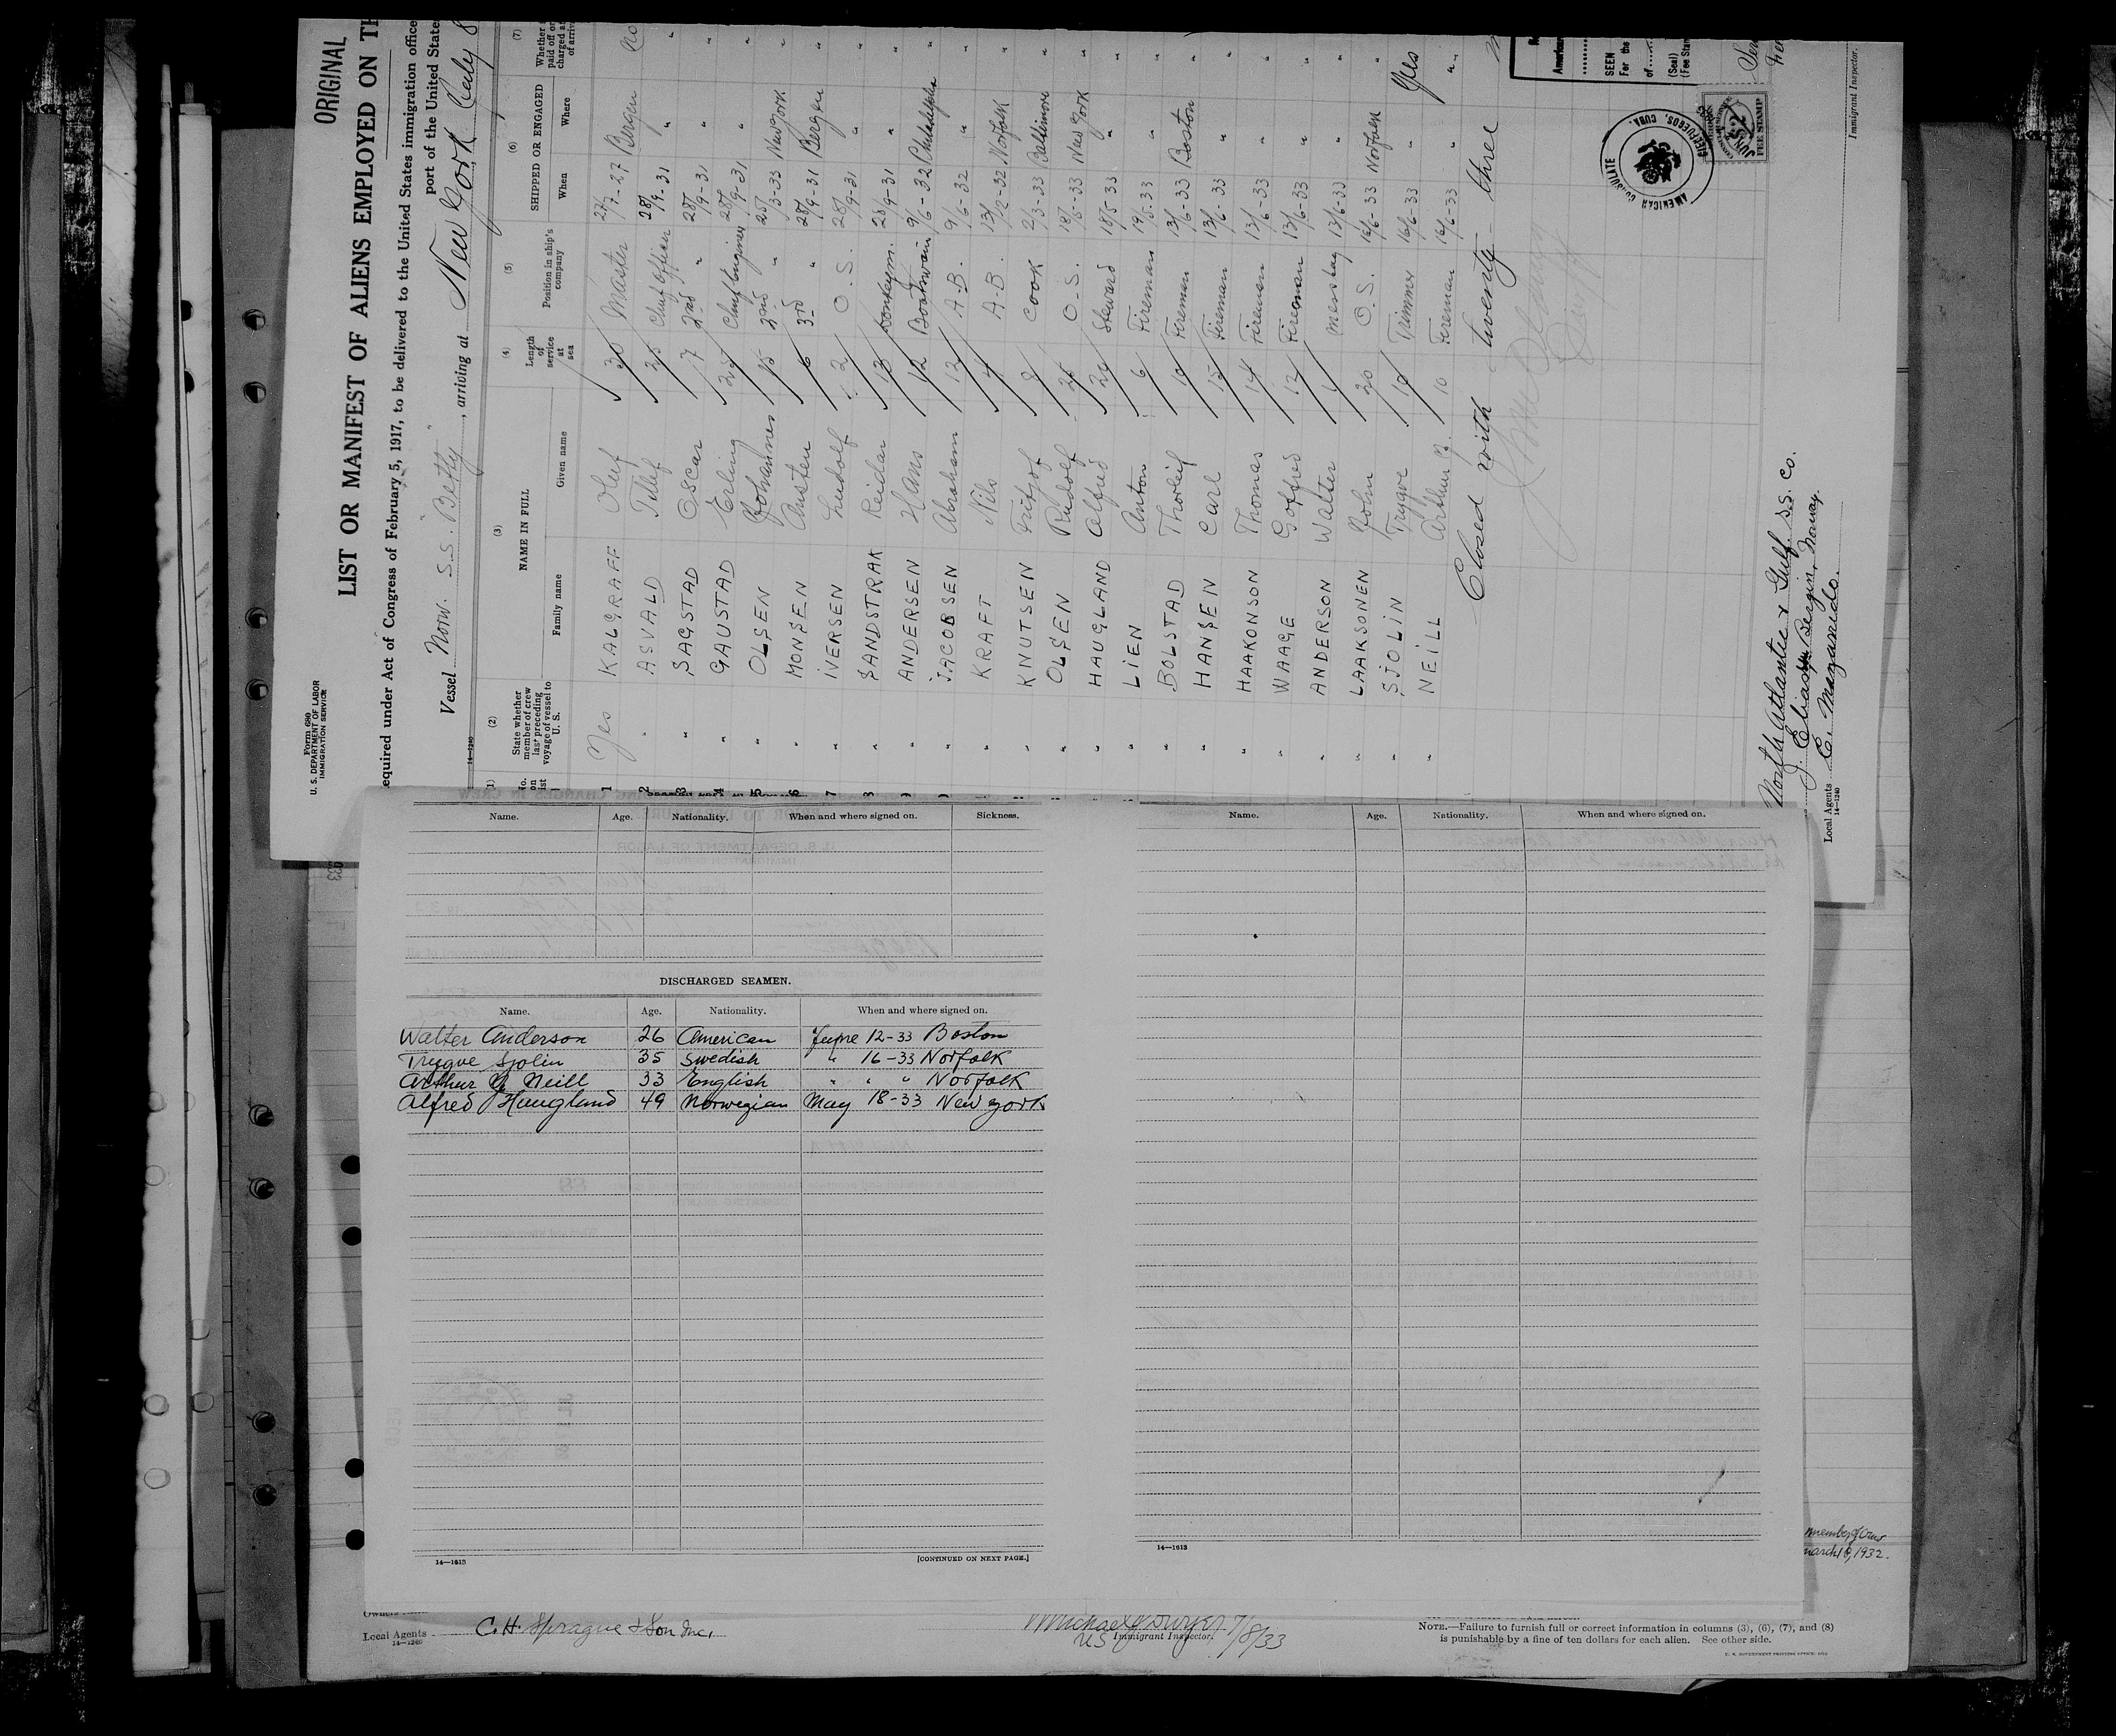 ORIGINAL
Form 680
U. S. DEPARTMENT OF LABOR
IMMIGRATION SERVICE
LIST OR MANIFEST OF ALIENS EMPLOYED ON
equired under Act of Congress of February 5, 1917, to be delivered to the United States immigration office
port of the United State
Vessel Norw. S.S. "Betty", arriving at New York July 8
14-1240
(1) (2) (3) (4) (5) (6) (7)
No. on list State whether member of crew last preceding voyage of vessel to U. S. NAME IN FULL Length of service at sea Position in ship's company SHIPPED OR ENGAGED Whether paid off or
Family name Given name When Where
1 Yes KALGRAFF Oluf 30 Master 27/7-27 Bergen no
2 " ASVALD Tellef 25 Chief officer 28/9-31 " "
3 " SAGSTAD Oscar 7 2nd " 28/9-31 " "
4 " GAUSTAD Erling 24 Chief Engineer 28/9-31 " "
5 " OLSEN Johannes 15 2nd " 25/3-33 New York "
6 " MONSEN Austen 6 3rd " 28/9-31 Bergen "
7 " IVERSEN Ludolf 2 O. S. 28/9-31 " "
8 " SANDSTRAK Reidar 13 Donkeym. 28/9-31 " "
9 " ANDERSEN Hans 12 Boatswain 9/6-32 Philadelphia "
" JACOBSEN Abraham 12 A-B. 9/6-32 " "
" KRAFT Nils 4 A-B. 13/12-32 Norfolk "
" KNUTSEN Fritjof 8 Cook 2/3-33 Baltimore "
" OLSEN Rudolf 25 O-S. 18/5-33 New York "
" HAUGLAND Alfred 24 Steward 18/5-33 " "
" LIEN Anton 6 Fireman 19/5-33 " "
" BOLSTAD Thorleif 10 Fireman 13/6-33 Boston "
" HANSEN Carl 15 Fireman 13/6-33 " "
" HAAKONSON Thomas 14 Fireman 13/6-33 " "
" WAAGE Gotfred 12 Fireman 13/6-33 " "
" ANDERSON Walter 1 Messboy 13/6-33 " "
" LAAKSONEN John 20 O. S. 16/6-33 Norfolk "
" SJOLIN Trygve 10 Trimmer 16/6-33 " Yes
" NEILL Arthur J. 10 Fireman 16/6-33 " "
Closed with twenty-three
SEEN
For the
of
(Seal)
(Fee Stam
AMERICAN CONSULATE
CIENFUEGOS, CUBA.
FEE STAMP
Immigrant Inspector.
North Atlantic & Gulf S.S. Co.
Bergen, Norway.
Local Agents C. Manzanedo.
14-1240
Name. Age. Nationality. When and where signed on. Sickness.
Name. Age. Nationality. When and where signed on.
DISCHARGED SEAMEN.
Name. Age. Nationality. When and where signed on.
Walter Anderson 26 American June 12-33 Boston
Trygve Sjolin 35 Swedish " 16-33 Norfolk
Arthur J. Neill 33 English " " " Norfolk
Alfred Haugland 49 Norwegian May 18-33 New York
14—1613 [CONTINUED ON NEXT PAGE.]
14—1613
member of crew
march 18, 1932.
Local Agents C. H. Sprague & Son Inc.
14—1240
Michael J Dwyer 7/8/33
US Immigrant Inspector.
NOTE.—Failure to furnish full or correct information in columns (3), (6), (7), and (8)
is punishable by a fine of ten dollars for each alien. See other side.